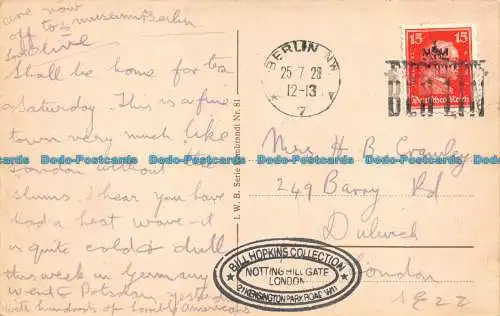 are now
off to museum Berlin
Love Olive
Shall be home for tea
Saturday. This is a fine
town very much like
London without the
slums. I hear you have
had a heat wave - it
is quite cold & dull
this week in Germany
went Potsdam yesterday
with hundreds of horrible americans
I. W. B. Serie Rembrandt Nr. 81
BERLIN NW
25.7.28
12-13
7
15 15
Deutsches Reich
BERLIN
Miss H B Crawley
249 Barry Rd
Dulwich
London
SE22
BILL HOPKINS COLLECTION
NOTTING HILL GATE
LONDON
21 KENSINGTON PARK ROAD W11
Dodo-Postcards Dodo-Postcards Dodo-Postcards Dodo-Postcards